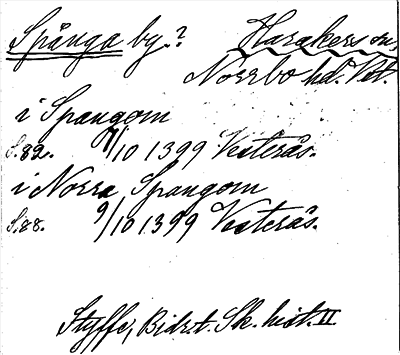 Spånga by.? Harakers sn,
Norrbo hd. Vstm.
i Spangom
S. 82. 9/10 1399 Vesterås.
i Norra Spangom
S. 88. 9/10 1399 Vesterås.
Styffe, Bidr. t. Sk. hist. II